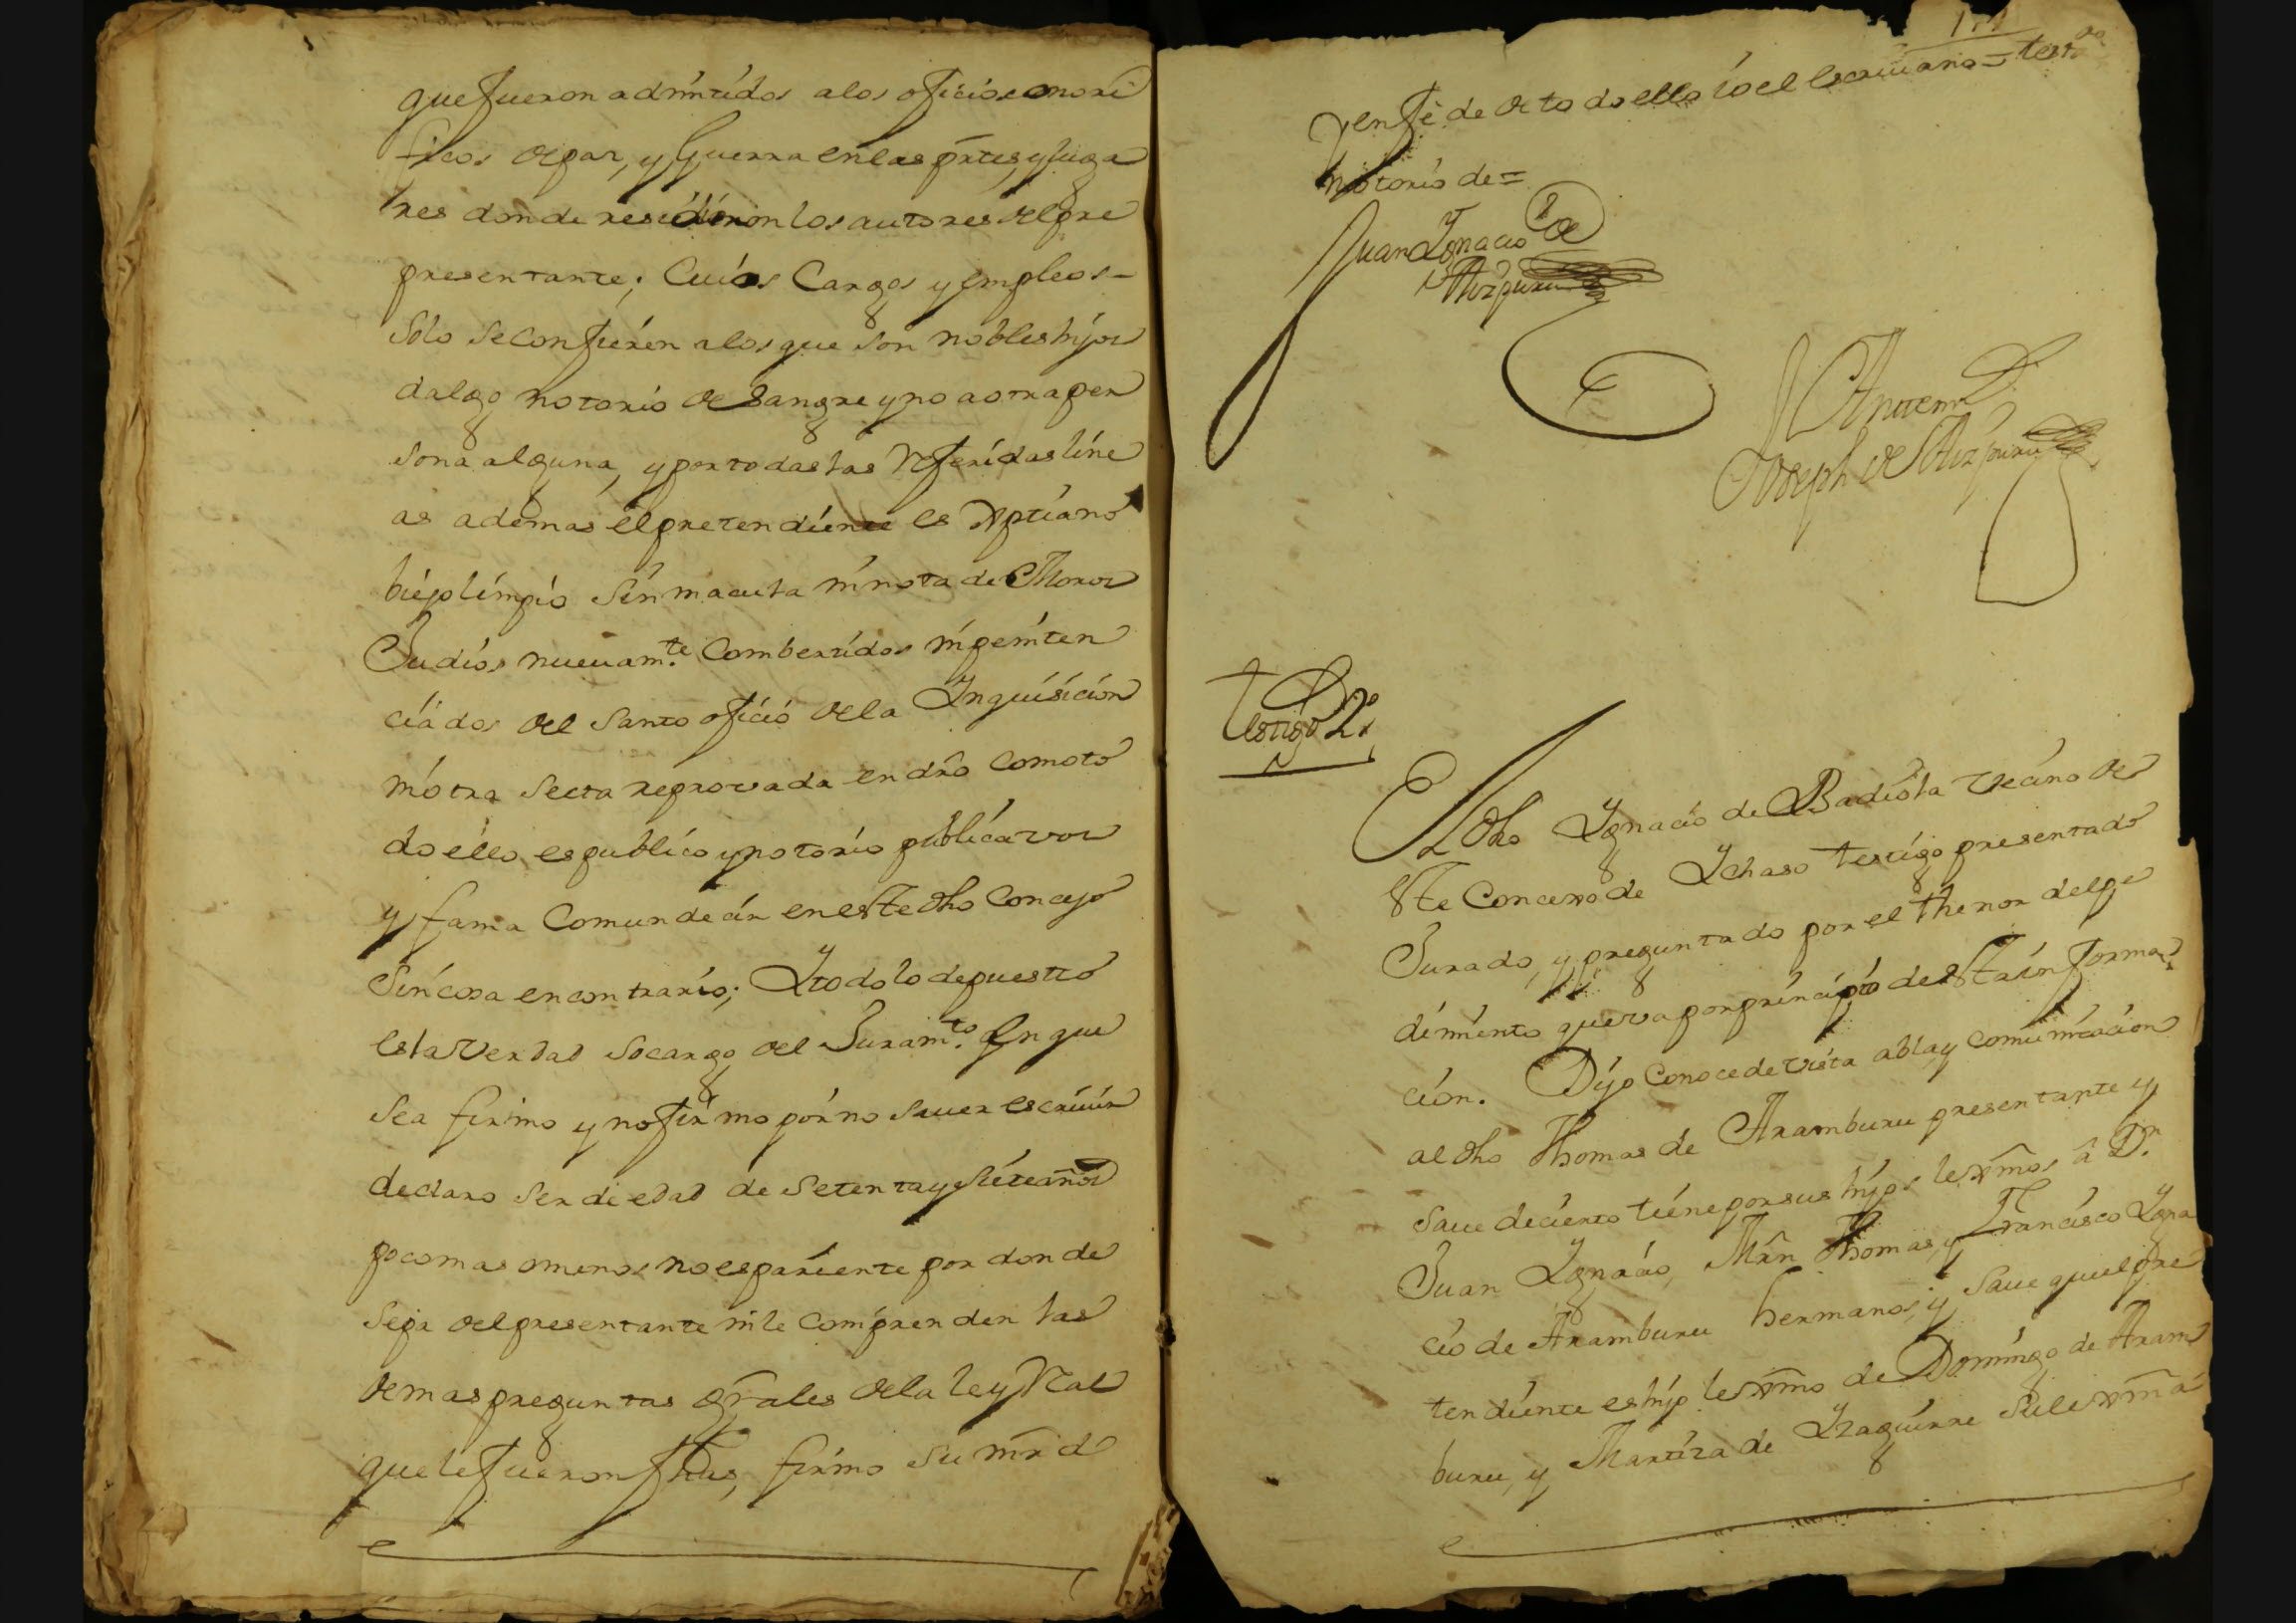 que fueron admitidos a los oficios onori
ficos de paz, y Guerra en las prtes, y luga
res donde residieron los autores del pre
presentante; Cuios Cargos y empleos -
solo se confieren a los que son nobles hijos
dalgo notorio de sangre y no a otra per
sona alguna, y por todas las referidas line
as ademas el pretendiente es Xptiano
biejo limpio sin macula ni nota de Moros
Judios nuevam.te Combertidos ni peniten
ciados del Santo oficio de la Inquisicion
ni otra secta reprovada en dro como to
do ello es publico y notorio publica voz
y fama Comun decir en este dho Concejo
sin cosa en contrario; Y todo lo depuesto
es la Verdad socargo del Juram.to En que
sea firmo y no firmo por no saver escrivir
declaro ser de edad de setenta y siete años
poco mas o menos no es pariente por donde
sepa del presentante ni le comprenden las
demas preguntas grales de la ley Real
que le fueron fhas, firmo su mrd
y en fe de de todo ello io el escrivano = test.do
notorio de =
Juan Ygnacio de
Aizpuru
Antemi
Joseph de Aizpuru
testigo 2.o
El dho Ygnacio de Badiola vecino de
este Concexo de Ychaso testigo presentado
Jurado, y preguntado por el thenor del pe
dimiento que va por principio de esta informa
ción. Dijo Conoce de vista abla, y comunicacion
al dho Thomas de Aramburu presentante y
save de cierto tiene por sus hijos lexmos â D.n
Juan Ygnacio, Mrn Thomas, y Francisco Ygna
cio de Aramburu hermanos, y save que el pre
tendiente es hijo lexmo de Domingo de Aram
buru, y Mariza de Yzaguirre su lexma